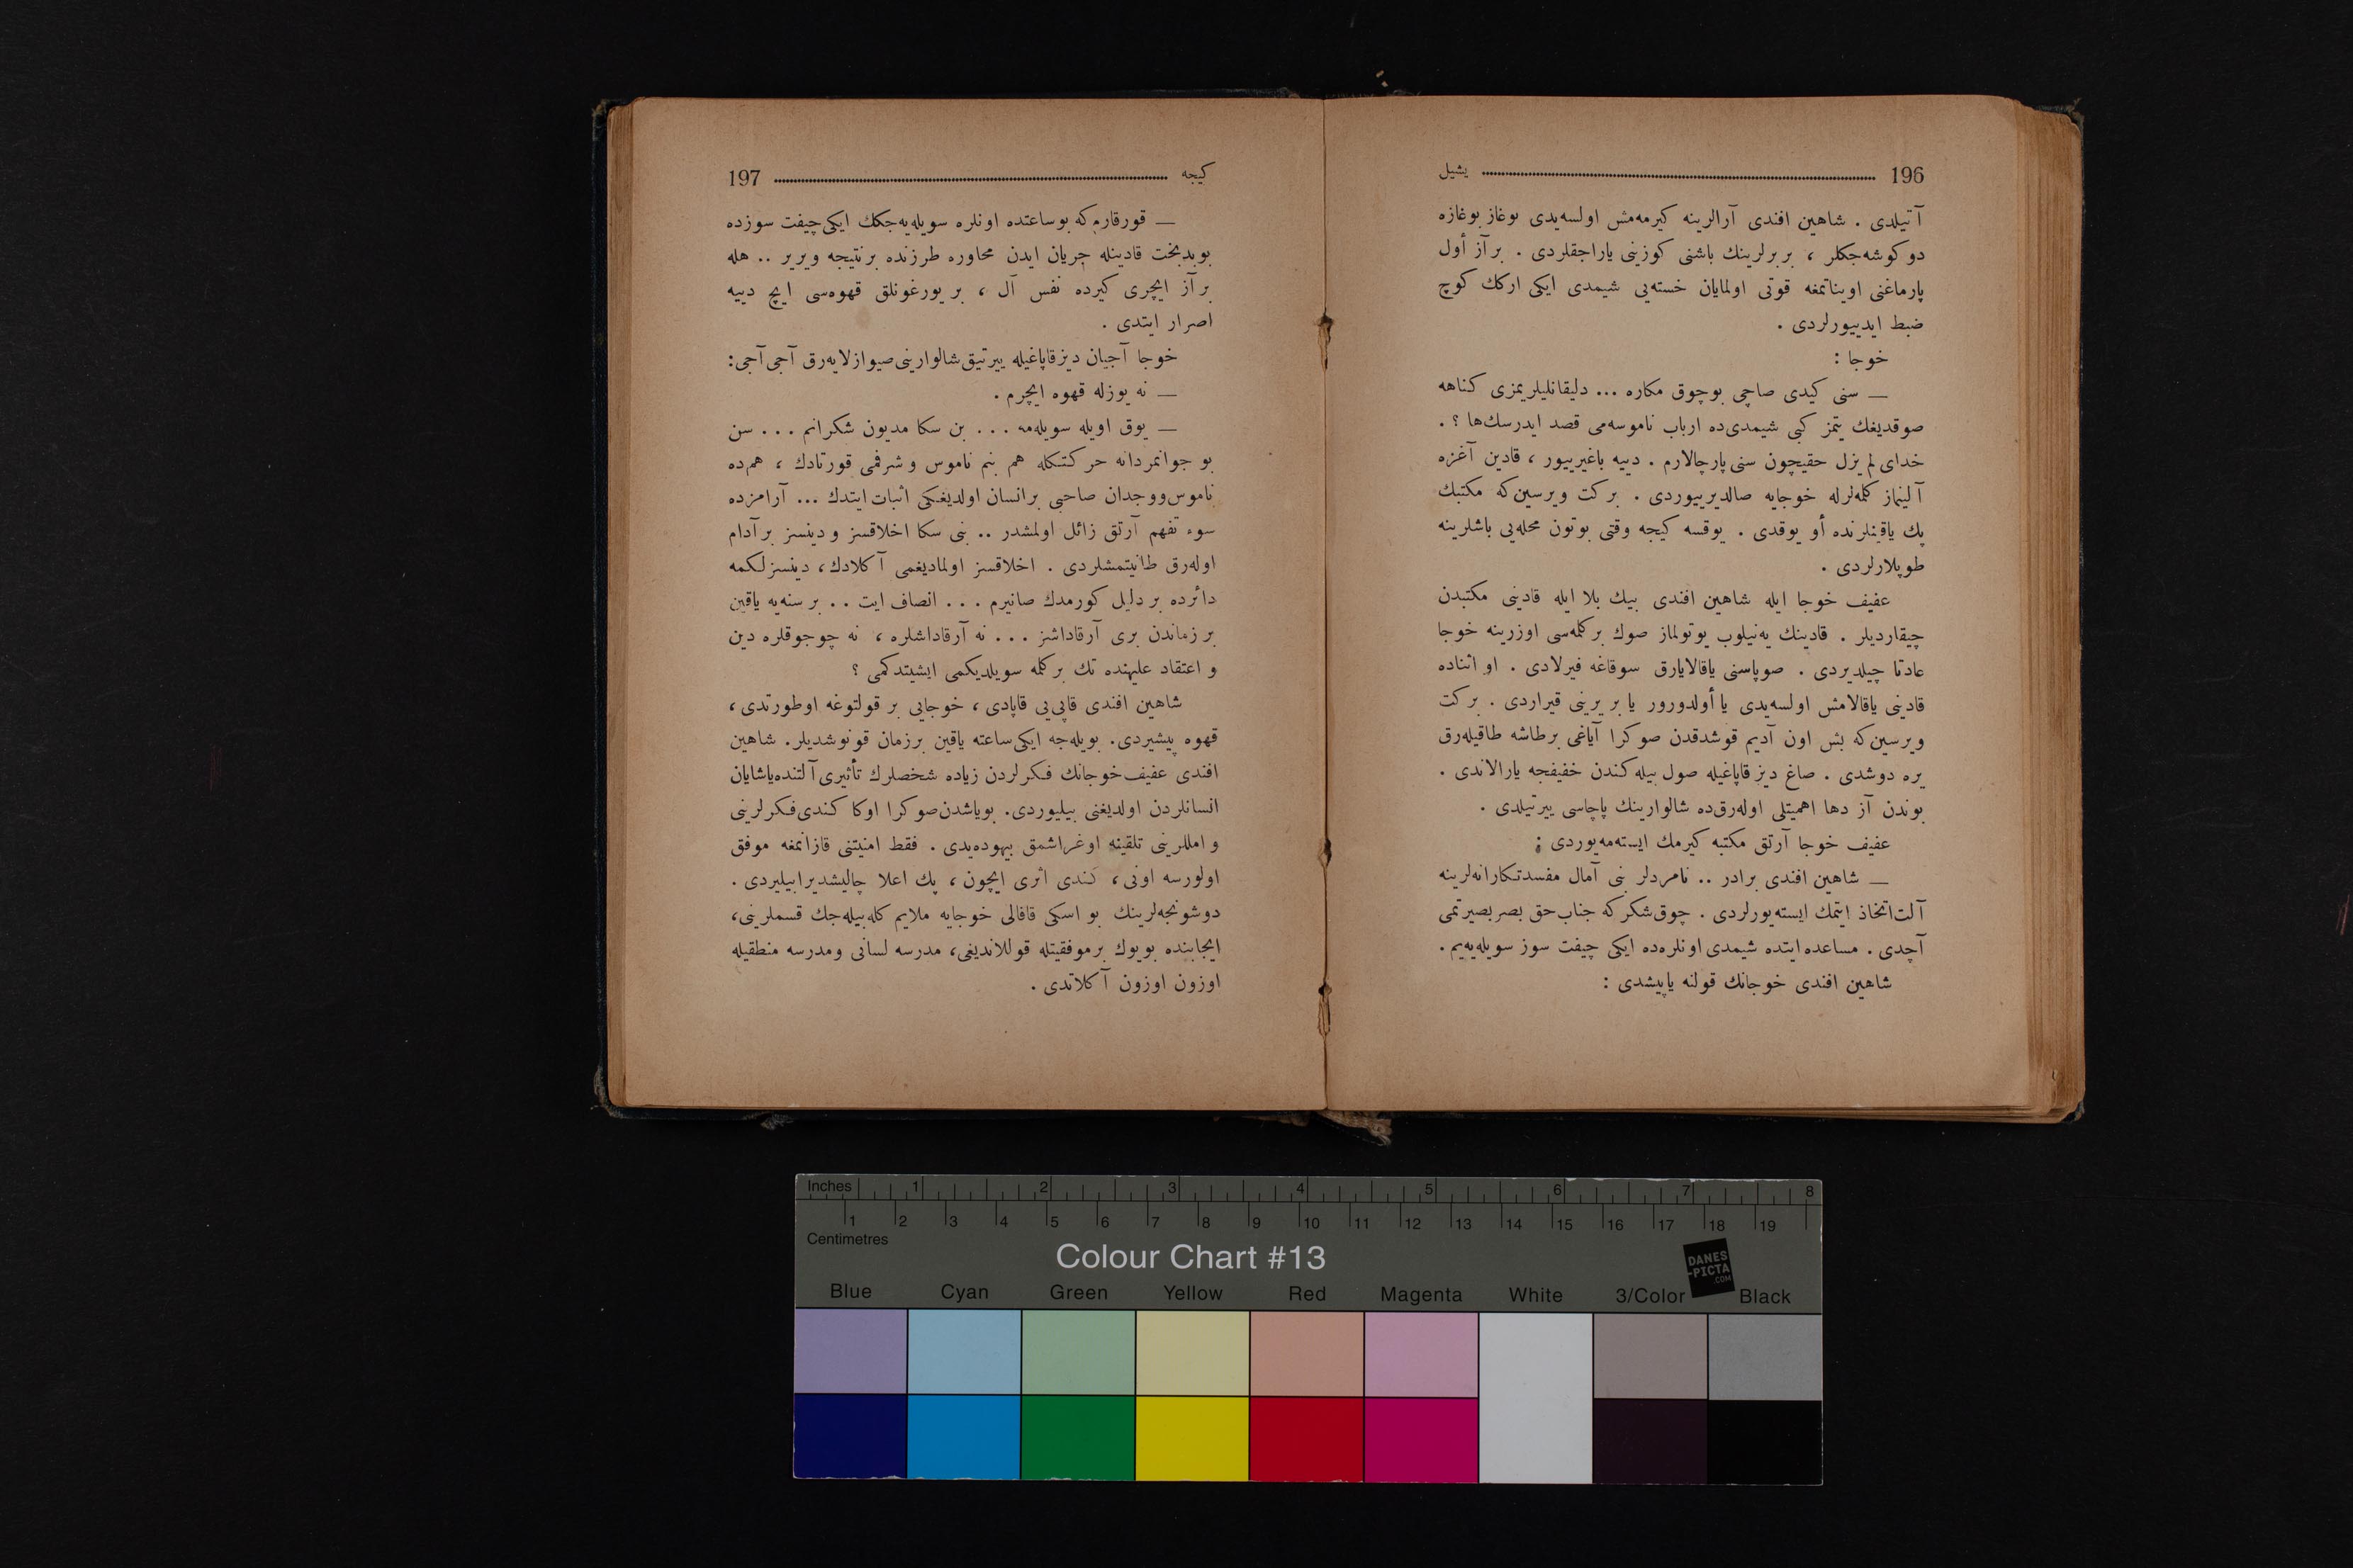 196 يشيل
آتيلدى . شاهين افندى آرالرينه كيرمه‌مش اولسه‌يدى بوغاز بوغازه
دوكوشه‌جكلر ، بربرلرينك باشنى كوزينى ياراجقلردى . برآز أول
پارماغنى اويناتمغه قوتى اولمايان خسته‌يى شيمدى ايكى اركك كوچ
ضبط ايدييورلردى .
خوجا :
— سنى كيدى صاچى بوچوق مكاره ... دليقانليلريمزى كناهه
صوقديغك يتمز كبى شيمدى‌ده ارباب ناموسه‌مى قصد ايدرسك‌ها ؟ .
خداى لم يزل حقيچون سنى پارچالارم . دييه باغيرييور ، قادين آغزه
آلينماز كلمه‌لرله خوجايه صالديرييوردى . بركت ويرسين‌كه مكتبك
پك ياقينلرنده أو يوقدى . يوقسه كيجه وقتى بوتون محله‌يى باشلرينه
طوپلارلردى .
عفيف خوجا ايله شاهين افندى بيك بلا ايله قادينى مكتبدن
چيقارديلر . قادينك يه‌نيلوب يوتولماز صوك بركلمه‌سى اوزرينه خوجا
عادتا چيلديردى . صوپاسنى ياقالايارق سوقاغه فيرلادى . او اثناده
قادينى ياقالامش اولسه‌يدى يا أولدورور يا بر يرينى قيراردى . بركت
ويرسين‌كه بش اون آديم قوشدقدن صوكرا آياغى برطاشه طاقيله‌رق
يره دوشدى . صاغ ديزقاپاغيله صول بيله‌كندن خفيفجه يارالاندى .
بوندن آز دها اهميتلى اوله‌رق‌ده شالوارينك پاچاسى ييرتيلدى .
عفيف خوجا آرتق مكتبه كيرمك ايسته‌مه‌يوردى :
— شاهين افندى برادر .. نامردلر بنى آمال مفسدتكارانه‌لرينه
آلت‌اتخاذ ايتمك ايسته‌يورلردى . چوق‌شكركه جناب‌حق بصربصيرتمى
آچدى . مساعده ايتده شيمدى اونلره‌ده ايكى چيفت سوز سويله‌يه‌يم .
شاهين افندى خوجانك قولنه ياپيشدى :
كيجه 197
— قورقارم‌كه بوساعتده اونلره سويله‌يه‌جكك ايكى‌چيفت سوزده
بوبدبخت قادينله جريان ايدن محاوره طرزنده برنتيجه ويرير .. هله
برآز ايچرى كيرده نفس آل ، بر يورغونلق قهوه‌سى ايچ دييه
اصرار ايتدى .
خوجا آجييان ديزقاپاغيله ييرتيق‌شالوارينى‌صيوازلايه‌رق آجى‌آجى:
— نه يوزله قهوه ايچرم .
— يوق اويله سويله‌مه ... بن سكا مديون شكرانم ... سن
بو جوانمردانه حركتكله هم بنم ناموس و شرفمى قورتادك ، هم‌ده
ناموس‌ووجدان صاحبى برانسان اولديغكى اثبات ايتدك ... آرامزده
سوء تفهم آرتق زائل اولمشدر .. بنى سكا اخلاقسز و دينسز برآدام
اوله‌رق طانيتمشلردى . اخلاقسز اولماديغمى آكلادك، دينسزلكمه
دائرده بر دليل كورمدك صانيرم ... انصاف ايت .. بر سنه‌يه ياقين
بر زماندن برى آرقاداشز ... نه آرقاداشلره ، نه چوجوقلره دين
و اعتقاد عليهنده تك بركلمه سويلديكمى ايشيتدكمى ؟
شاهين افندى قاپى‌يى قاپادى ، خوجايى بر قولتوغه اوطورتدى ،
قهوه پيشيردى. بويله‌جه ايكى‌ساعته ياقين برزمان قونوشديلر. شاهين
افندى عفيف‌خوجانك فكرلردن زياده شخصلرك تأثيرى‌آلتنده‌ياشايان
انسانلردن اولديغنى بيليوردى. بوياشدن‌صوكرا اوكا كندى‌فكرلرينى
و امللرينى تلقينه اوغراشمق بيهوده‌يدى . فقط امنيتنى قازانمغه موفق
اولورسه اونى ، كندى اثرى ايچون ، پك اعلا چاليشديرابيليردى .
دوشونجه‌لرينك بو اسكى قافالى خوجايه ملايم كله‌بيله‌جك قسملرينى،
ايجابنده بويوك برموفقيتله قوللانديغى، مدرسه لسانى ومدرسه منطقيله
اوزون اوزون آكلاتدى .
Inches 1 2 3 4 5 6 7 8
1 2 3 4 5 6 7 8 9 10 11 12 13 14 15 16 17 18 19
Centimetres
Colour Chart #13
DANES
-PICTA
.COM
Blue Cyan Green Yellow Red Magenta White 3/Color Black